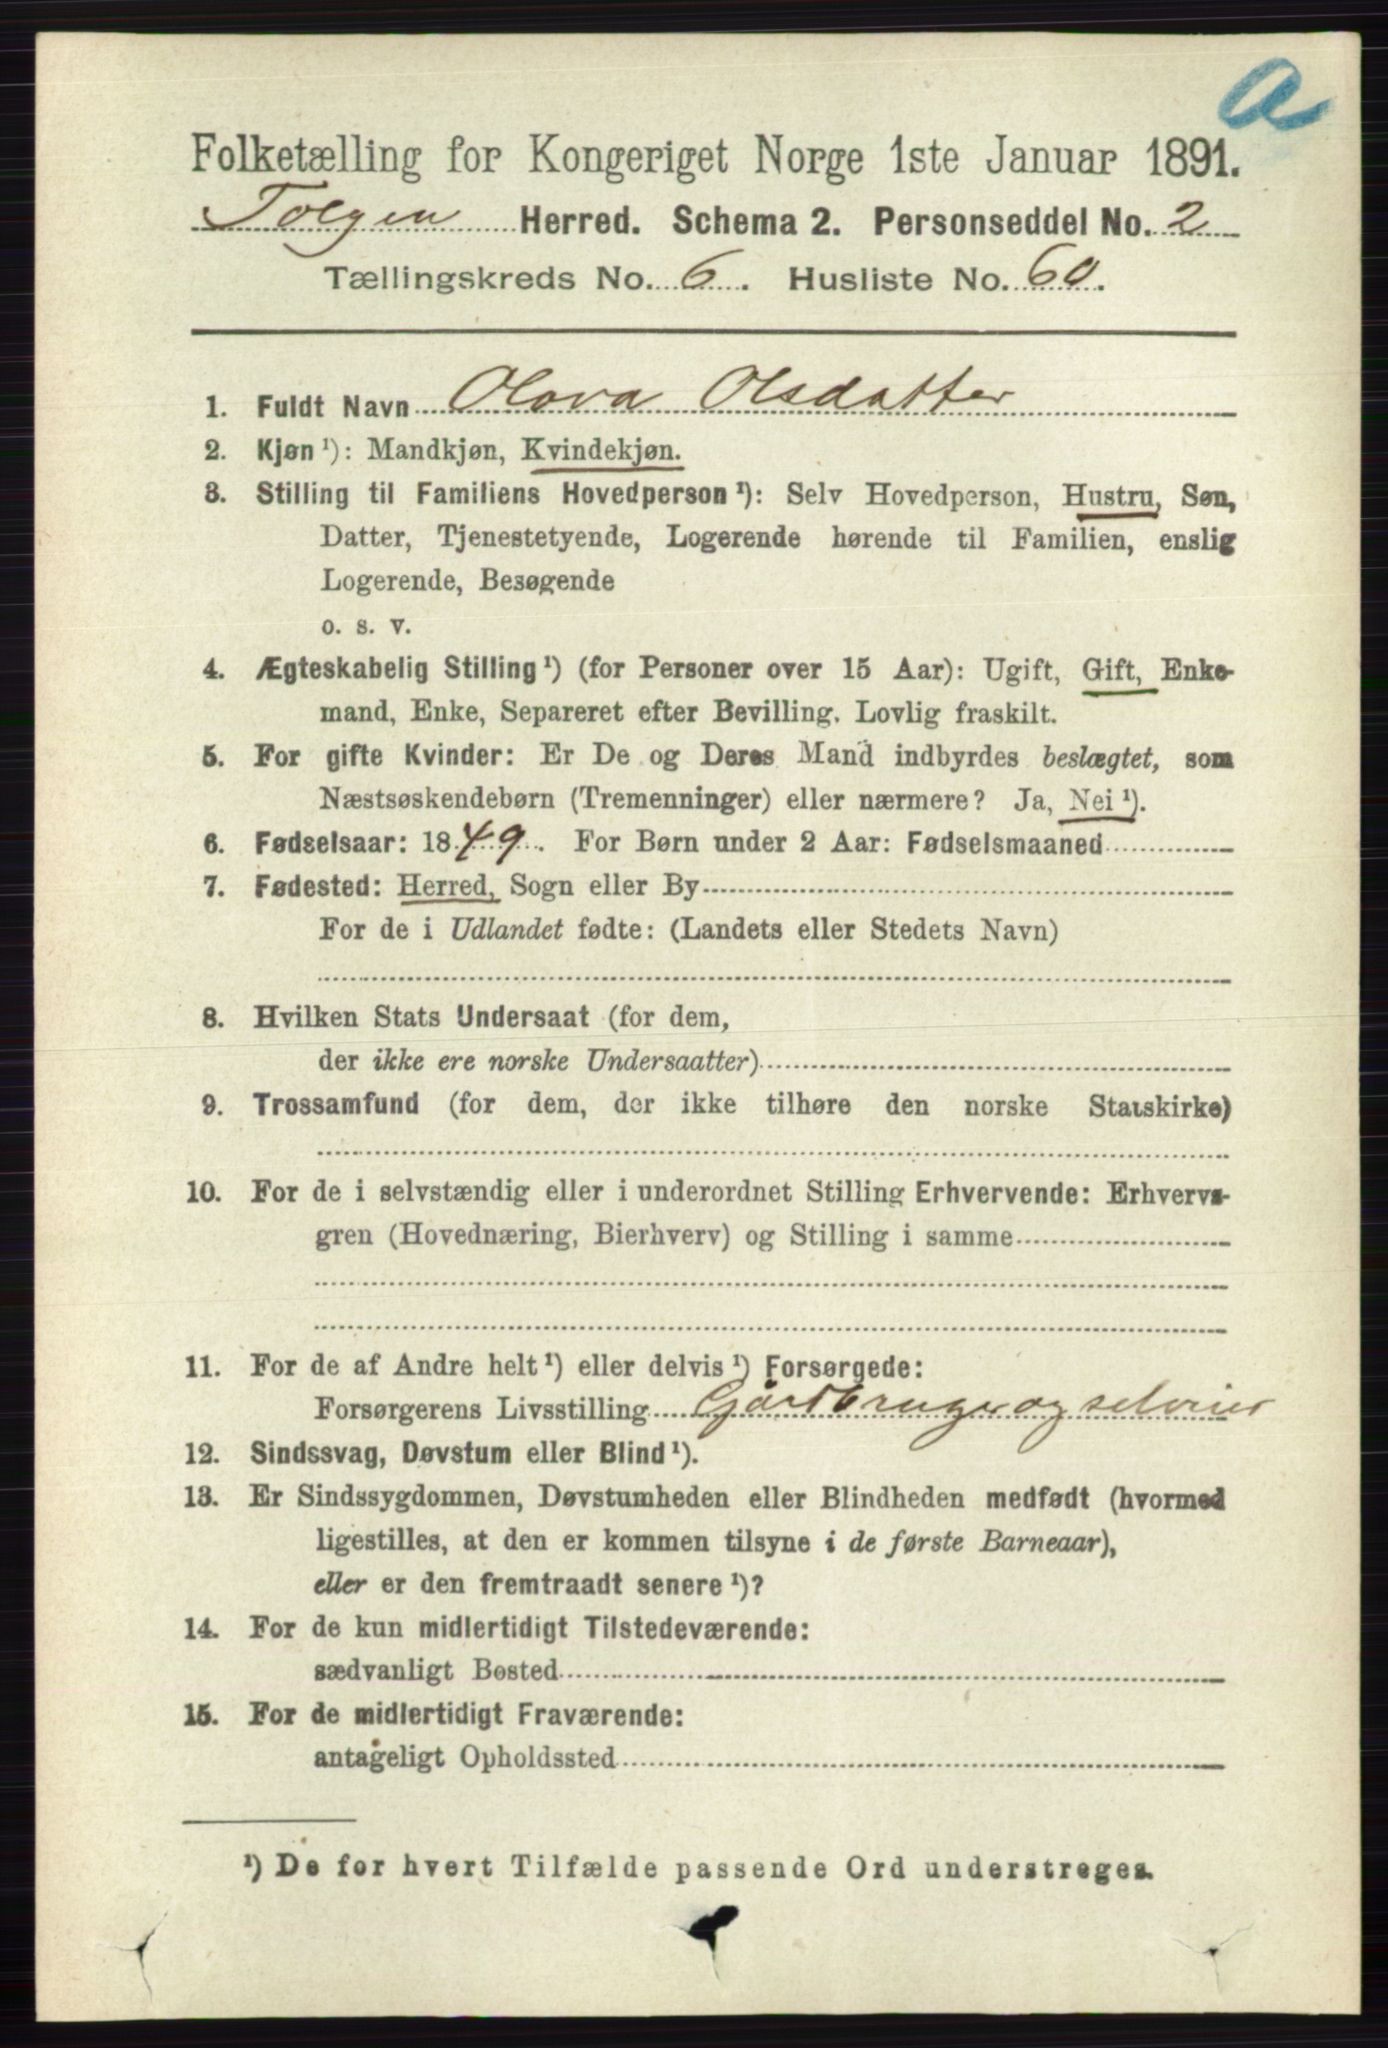 a
Folketælling for Kongeriget Norge 1ste Januar 1891.
Tolgen Herred. Schema 2. Personseddel No. 2
Tællingskreds No. 6. Husliste No. 60.
1. Fuldt Navn Olava Olsdatter
2. Kjøn ¹): Mandkjøn, Kvindekjøn.
3. Stilling til Familiens Hovedperson ¹): Selv Hovedperson, Hustru, Søn,
Datter, Tjenestetyende, Logerende hørende til Familien, enslig
Logerende, Besøgende
o. s. v.
4. Ægteskabelig Stilling ¹) (for Personer over 15 Aar): Ugift, Gift, Enke-
mand, Enke, Separeret efter Bevilling. Lovlig fraskilt.
5. For gifte Kvinder: Er De og Deres Mand indbyrdes beslægtet, som
Næstsøskendebørn (Tremenninger) eller nærmere? Ja, Nei ¹).
6. Fødselsaar: 1849. For Børn under 2 Aar: Fødselsmaaned
7. Fødested: Herred, Sogn eller By
For de i Udlandet fødte: (Landets eller Stedets Navn)
8. Hvilken Stats Undersaat (for dem,
der ikke ere norske Undersaatter)
9. Trossamfund (for dem, der ikke tilhøre den norske Statskirke)
10. For de i selvstændig eller i underordnet Stilling Erhvervende: Erhvervs-
gren (Hovednæring, Bierhverv) og Stilling i samme
11. For de af Andre helt ¹) eller delvis ¹) Forsørgede:
Forsørgerens Livsstilling Gårdbruger og selveier
12. Sindssvag, Døvstum eller Blind ¹).
13. Er Sindssygdommen, Døvstumheden eller Blindheden medfødt (hvormed
ligestilles, at den er kommen tilsyne i de første Barneaar),
eller er den fremtraadt senere ¹)?
14. For de kun midlertidigt Tilstedeværende:
sædvanligt Bosted
15. For de midlertidigt Fraværende:
antageligt Opholdssted
¹) De for hvert Tilfælde passende Ord understreges.